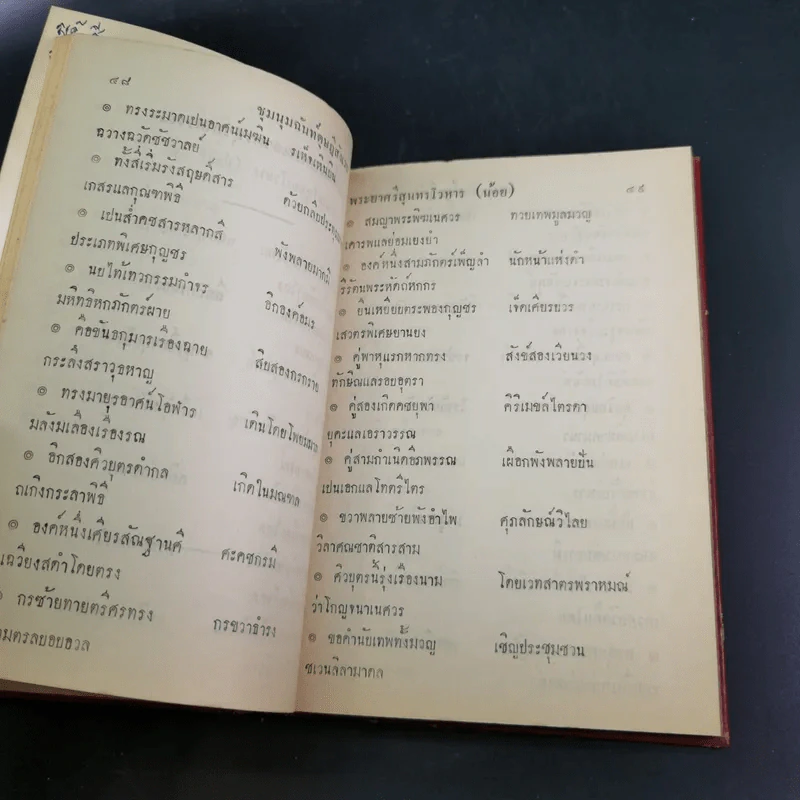 ๔๘
ชุมนุมฉันท์ดุษฎีสังเวย
๏ ทรงระมาดเปนอาศน์เมฆิน รเห็จเห็นบิน
ฉวางฉวัดชัชวาลย์
๏ ทั้งสี่เริ่มรังสฤษดิ์สาร ด้วยกลีบประทุม
เกสรแลกุณฑพิธี
๏ เปนสำดชสารหลากสี พังพลายมากมี
ประเภทพิเศษกุญชร
๏ นยไท้เทวกรรมกำจร อิกองค์อมร
มหิทธิหกภักตร์ผาย
๏ คือขันธกุมารเรืองฉาย สิบสองกรกราย
กระลึงสราวุธหาญ
๏ ทรงมายุรอาศน์โอฬาร เดินโดยโพยมมาน
มลังมเลืองเรืองรณ
๏ อิกสองศิวบุตรดำกล เกิดในมณฑล
ถเกิงกระลาพิธี
๏ องค์หนึ่งเศียรสัณฐานศี ศะคชกรมี
เฉวียงสดำโดยตรง
๏ กรซ้ายทายตรีศรทรง กรขวาธำรง
มตรลยอยอวล
พระยาศรีสุนทรโวหาร (น้อย) ๔๙
๏ สมญาพระพิฆเนศวร ทวยเทพมูลมวญ
เคารพแลย่อมเยงยำ
๏ องค์หนึ่งสามภักตร์เพ็ญล้ำ นักหน้าแห่งดำ
ริรัตนพระหัตถ์หกกร
๏ ยืนเหยียบตระพองกุญชร เจ็ดเศียรบวร
เสวตรพิเศษยานยง
๏ คู่พาหุแรกหากทรง สังข์สองเบียนวง
ทักษิณแลรอยอุตรา
๏ คู่สองเกิดคชยุพา คิริเมขล์ไตรดา
ยุคะแลเอราวรรณ
๏ คู่สามกำเนิดอิภพรรณ เผือกพังพลายยืน
เปนเอกแลโทตรีไตร
๏ ขวาพลายซ้ายพังอำไพ ศุภลักษณ์วิไลย
วิลาศณชาติสารสาม
๏ ศิวบุตรนี้รุ่งเรืองนาม โดยเวทสาตรพราหมณ์
ว่าโกญจนาเนศวร
๏ ขอคำนัยเทพทั้งมวญ เชิญประชุมชวน
ชเวนลิลามาดล